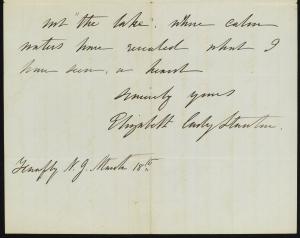 not "the lake". whose calm
waters have revealed what I
have seen, a heart
Sincerely yours
Elizabeth Cady Stanton.
Tenafly N. J. March 18th